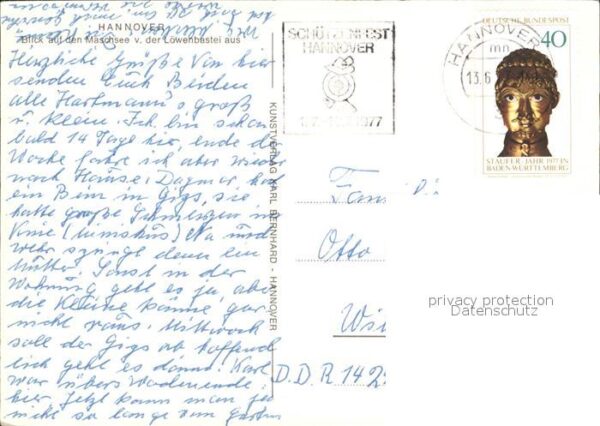 HANNOVER
Blick auf den Maschsee v. der Löwenbastei aus
Herzliche Grüße von hier
senden Euch Beiden
alle Hartmann's groß
u. klein. Ich bin schon
bald 14 Tage hier, ende der
Woche fahre ich aber wieder
nach Hause. Dagmar hat
ein Bein in Gips, sie
hatte große Schmerzen im
Knie (Miniskus) Na und
wer springt dann ein
Mutter. Sonst in der
Wohnung geht es ja, aber
die Kleine kann gar
nicht raus. Mittwoch
soll der Gips ab hoffend
lich geht es dann. Karl
war übers Wochenende
hier, jetzt kann man ja
nicht so lange vom Garten
KUNSTVERLAG KARL BERNHARD - HANNOVER
SCHÜTZENFEST
HANNOVER
1977
HANNOVER
mn
13.6
DEUTSCHE BUNDESPOST
40
STAUFER-JAHR 1977 IN
BADEN-WÜRTTEMBERG
Fam
Otto
Wi
D.D.R 142
privacy protection
Datenschutz